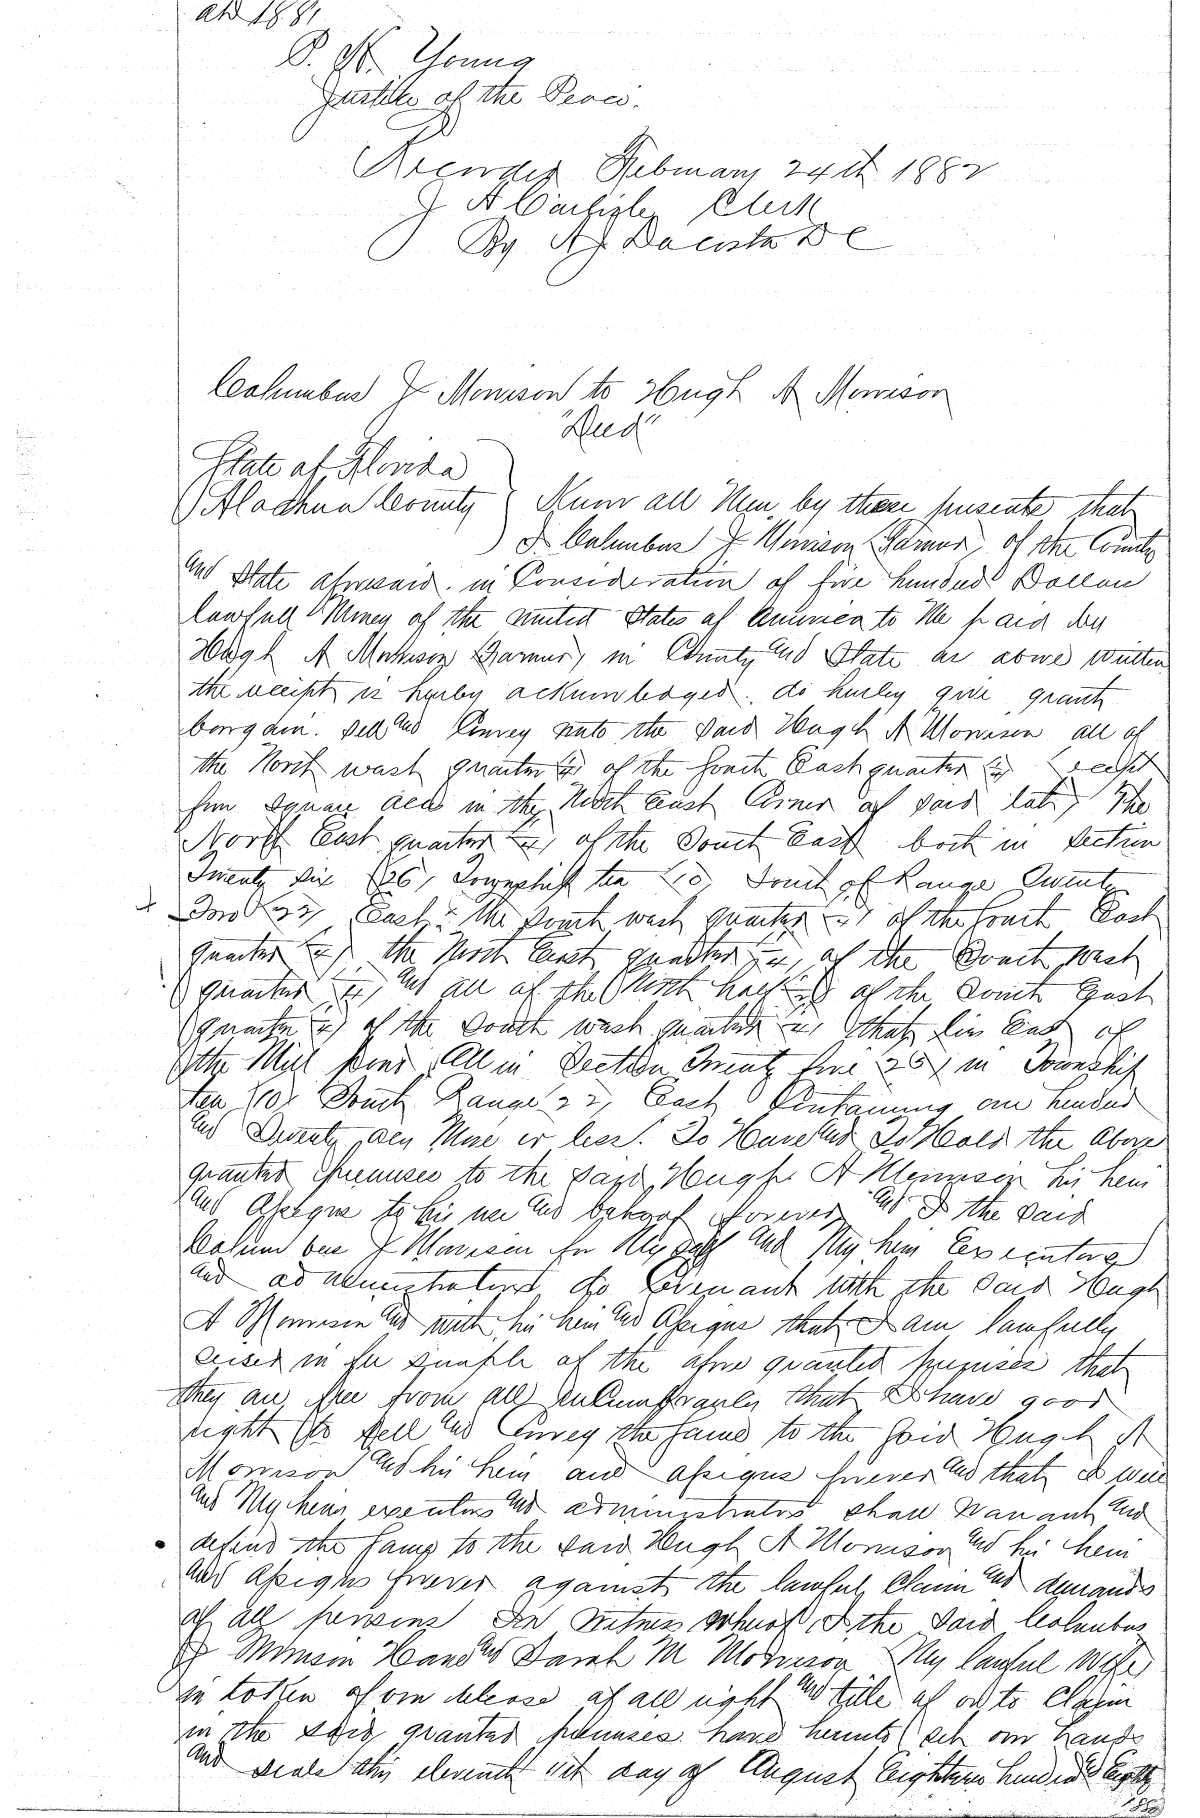 AD 1881
P. H. Young
Justice of the Peace.
Recorded February 24th 1882
J A Carlisle, Clerk
By A J Dacosta D C
Columbus J Morrison to Hugh A Morrison
"Deed"
State of Florida
Alachua County } Know all Men by these presents that
I Columbus J Morrison (Farmer) of the County
and State aforesaid. in Consideration of five hundred Dollars
lawfull Money of the united States of America to Me paid by
Hugh A Morrison (Farmer) in County and State as above written
the receipt is hereby acknowledged. do hereby give grant
bargain. sell and Convey unto the said Hugh A Morrison all of
the North west quarter (¼) of the South East quarter (¼) (except
square acres in the North East Corner of said lot) The
North East quarter (¼) of the South East both in Section
Twenty six (26) Township ten (10) South of Range Twenty
Two (22) East. the South west quarter (¼) of the South East
quarter (¼) the North East quarter (¼) of the South west
quarter (¼) and all of the North half (½) of the South East
quarter (¼) of the South west quarter (¼) that lies East of
the Mill pond All in Section Twenty five (25) in Township
ten (10) South Range (22) East Containing one hundred
and Twenty acres More or less. To Have and To Hold the above
granted premises to the said Hugh A Morrison his heirs
and Assigns to his use and behoof forever and I the said
Columbus J Morrison for Myself and My heirs Executors
and administrators do Covenant with the said Hugh
A Morrison and with his heirs and Assigns that I am lawfully
seised in fee simple of the afore granted premises that
they are free from all Incumbrances that I have good
right to sell and Convey the same to the said Hugh A
Morrison and his heirs and assigns forever and that I will
and My heirs executors and administrators shall Warrant and
defend the same to the said Hugh A Morrison and his heirs
and Assigns forever against the lawful Claim and demands
of all persons In Witness whereof I the said Columbus
J Morrison Hand and Sarah M Morrison My lawful wife
in token of our release of all right and title of or to Claim
in the said granted premises have hereunto set our hands
and seals this eleventh day of August Eighteen hundred & Eighty
1880